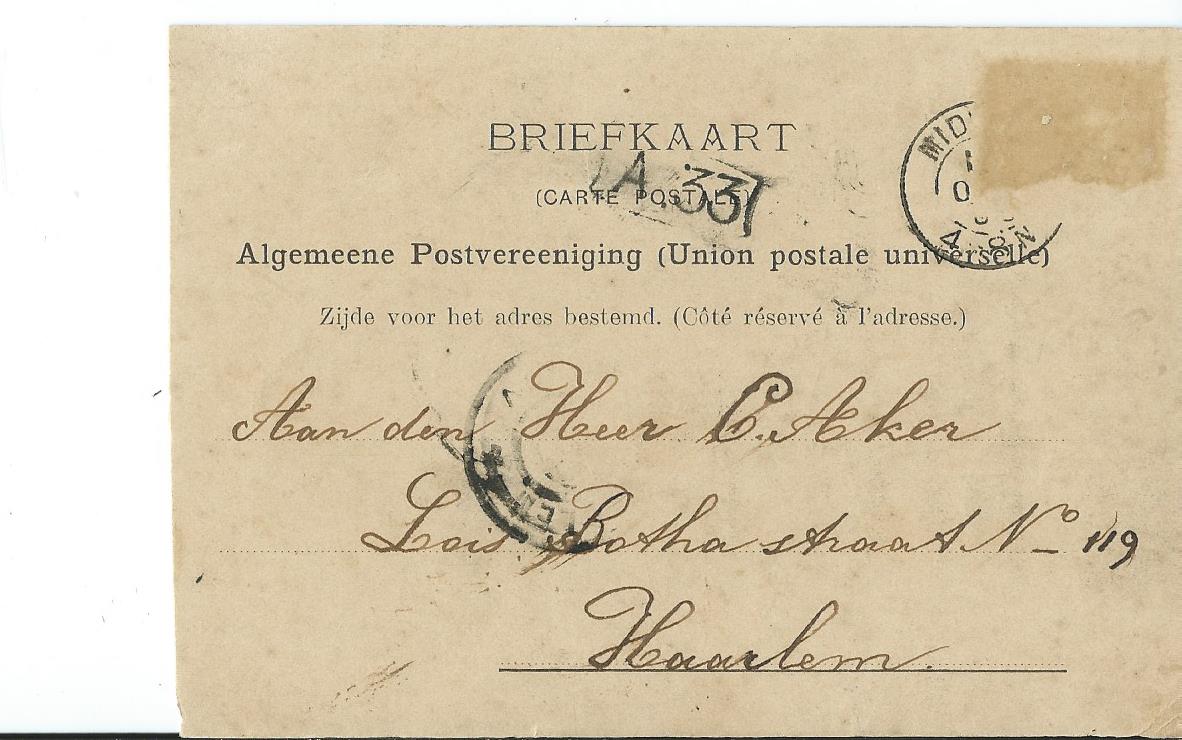 BRIEFKAART
(CARTE POSTALE)
A.337
Algemeene Postvereeniging (Union postale universelle)
Zijde voor het adres bestemd. (Côté réservé à l'adresse.)
Aan den Heer C. Aker
Lois Botha straat No 119
Haarlem.